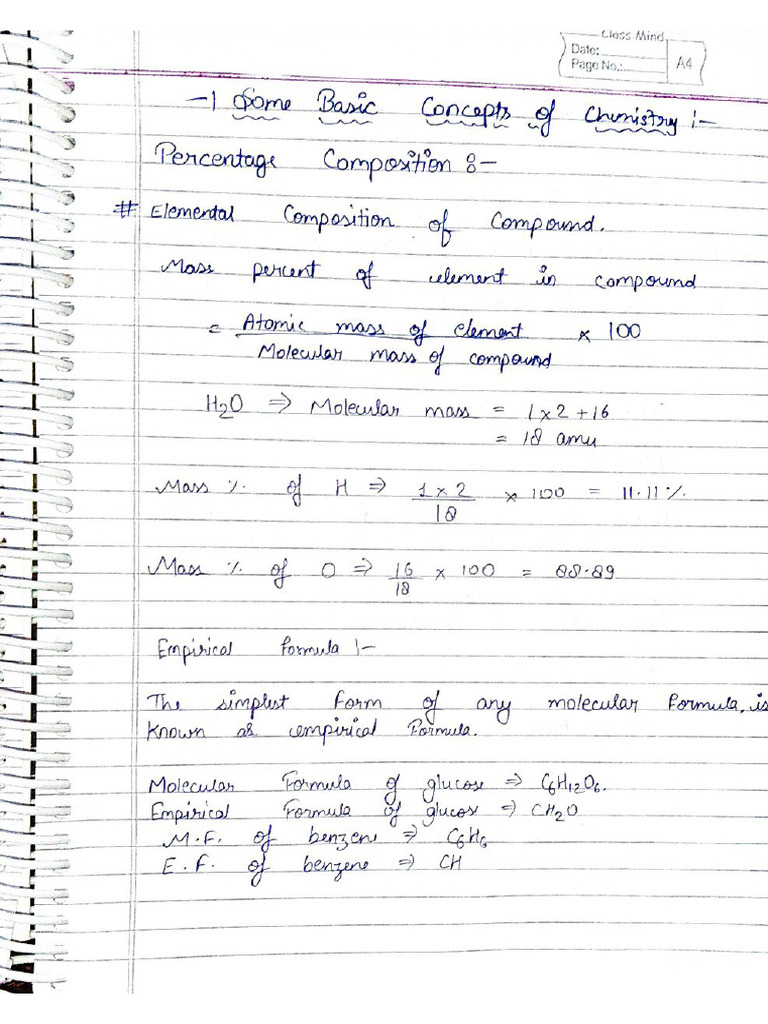 Class Mind
Date:
Page No.:
A4
-| Some Basic Concepts of Chemistry :-
Percentage Composition :-
# Elemental Composition of Compound.
Mass percent of element in compound
= Atomic mass of element × 100
Molecular mass of compound
H2O ⇒ Molecular mass = 1×2+16
= 18 amu
Mass % of H ⇒ 1×2 × 100 = 11.11%
18
Mass % of O ⇒ 16 × 100 = 88.89
18
Empirical formula :-
The simplest form of any molecular formula, is
known as empirical formula.
Molecular Formula of glucose ⇒ C6H12O6.
Empirical Formula of glucose ⇒ CH2O
M.F. of benzene ⇒ C6H6
E.F. of benzene ⇒ CH